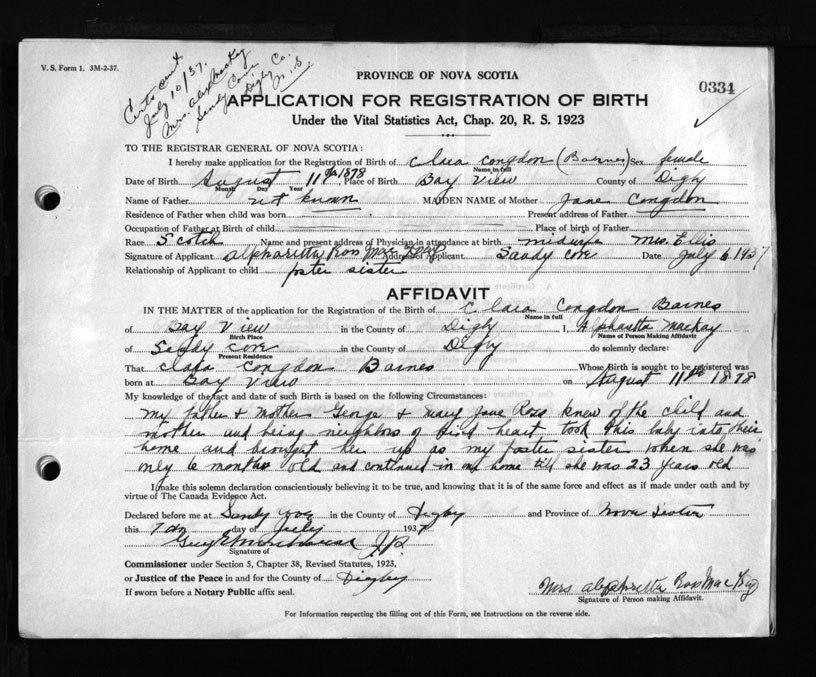 V. S. Form 1. 3M-2-37.
July 10/37.
Mrs. Alex MacKay
Sandy Cove
Digby Co.
N. S.
PROVINCE OF NOVA SCOTIA
0334
APPLICATION FOR REGISTRATION OF BIRTH
Under the Vital Statistics Act, Chap. 20, R. S. 1923
TO THE REGISTRAR GENERAL OF NOVA SCOTIA:
I hereby make application for the Registration of Birth of Clara Congdon (Barnes) Sex female
Name in full
Date of Birth August 11th 1878, Place of Birth Bay View County of Digby
Month Day Year
Name of Father not known MAIDEN NAME of Mother Jane Congdon
Residence of Father when child was born Present address of Father
Occupation of Father at Birth of child Place of birth of Father
Race Scotch Name and present address of Physician in attendance at birth midwife Mrs. Ellis
Signature of Applicant Alpharetta Ross MacKay Address of Applicant Sandy Cove Date July 6 1937
Relationship of Applicant to child foster sister
AFFIDAVIT
IN THE MATTER of the application for the Registration of the Birth of Clara Congdon Barnes
Name in full
of Bay View in the County of Digby I, Alpharetta MacKay
Birth Place Name of Person Making Affidavit
of Sandy Cove in the County of Digby do solemnly declare:
Present Residence
That Clara Congdon Barnes Whose Birth is sought to be registered was
born at Bay View on August 11th 1878
My knowledge of the fact and date of such Birth is based on the following Circumstances:
My father & mother George & Mary Jane Ross knew of the child and
mother and being neighbors of kind heart took this baby into their
home and brought her up as my foster sister when she was
only 6 months old and continued in my home till she was 23 years old
I make this solemn declaration conscientiously believing it to be true, and knowing that it is of the same force and effect as if made under oath and by
virtue of The Canada Evidence Act.
Declared before me at Sandy Cove in the County of Digby and Province of Nova Scotia
this 7th day of July 1937
J.P.
Signature of
Commissioner under Section 5, Chapter 38, Revised Statutes, 1923,
or Justice of the Peace in and for the County of Digby
If sworn before a Notary Public affix seal.
Mrs Alpharetta Ross MacKay
Signature of Person making Affidavit.
For Information respecting the filling out of this Form, see Instructions on the reverse side.